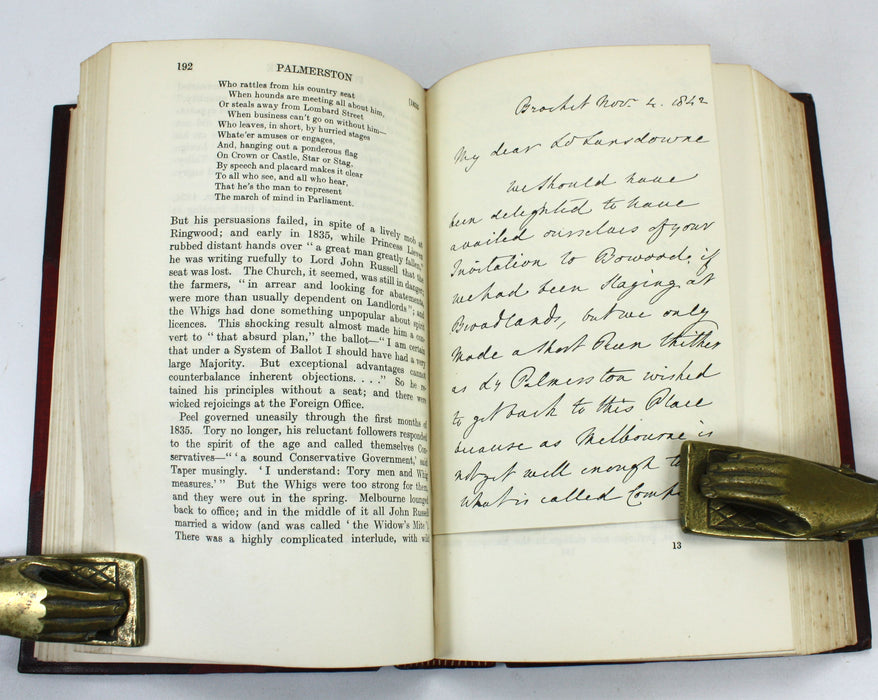 192 PALMERSTON
[1835
Who rattles from his country seat
When hounds are meeting all about him,
Or steals away from Lombard Street
When business can't go on without him—
Who leaves, in short, by hurried stages
Whate'er amuses or engages,
And, hanging out a ponderous flag
On Crown or Castle, Star or Stag,
By speech and placard makes it clear
To all who see, and all who hear,
That he's the man to represent
The march of mind in Parliament.
But his persuasions failed, in spite of a lively mob at
Ringwood; and early in 1835, while Princess Lieven
rubbed distant hands over "a great man greatly fallen,"
he was writing ruefully to Lord John Russell that the
seat was lost. The Church, it seemed, was still in danger;
the farmers, "in arrear and looking for abatements,
were more than usually dependent on Landlords"; and
the Whigs had done something unpopular about spirit
licences. This shocking result almost made him a con-
vert to "that absurd plan," the ballot—"I am certain
that under a System of Ballot I should have had a very
large Majority. But exceptional advantages cannot
counterbalance inherent objections. . . ." So he re-
tained his principles without a seat; and there were
wicked rejoicings at the Foreign Office.
Peel governed uneasily through the first months of
1835. Tory no longer, his reluctant followers responded
to the spirit of the age and called themselves Con-
servatives—"'a sound Conservative Government,' said
Taper musingly. 'I understand: Tory men and Whig
measures.'" But the Whigs were too strong for them,
and they were out in the spring. Melbourne lounged
back to office; and in the middle of it all John Russell
married a widow (and was called 'the Widow's Mite').
There was a highly complicated interlude, with wild
Brocket Nov. 4. 1842
My dear Ld Lansdowne
We should have
been delighted to have
availed ourselves of your
Invitation to Bowood, if
we had been staying at
Broadlands, but we only
made a short Run thither
as Ly Palmerston wished
to get back to this Place
because as Melbourne is
not yet well enough to
what is called Comp
13